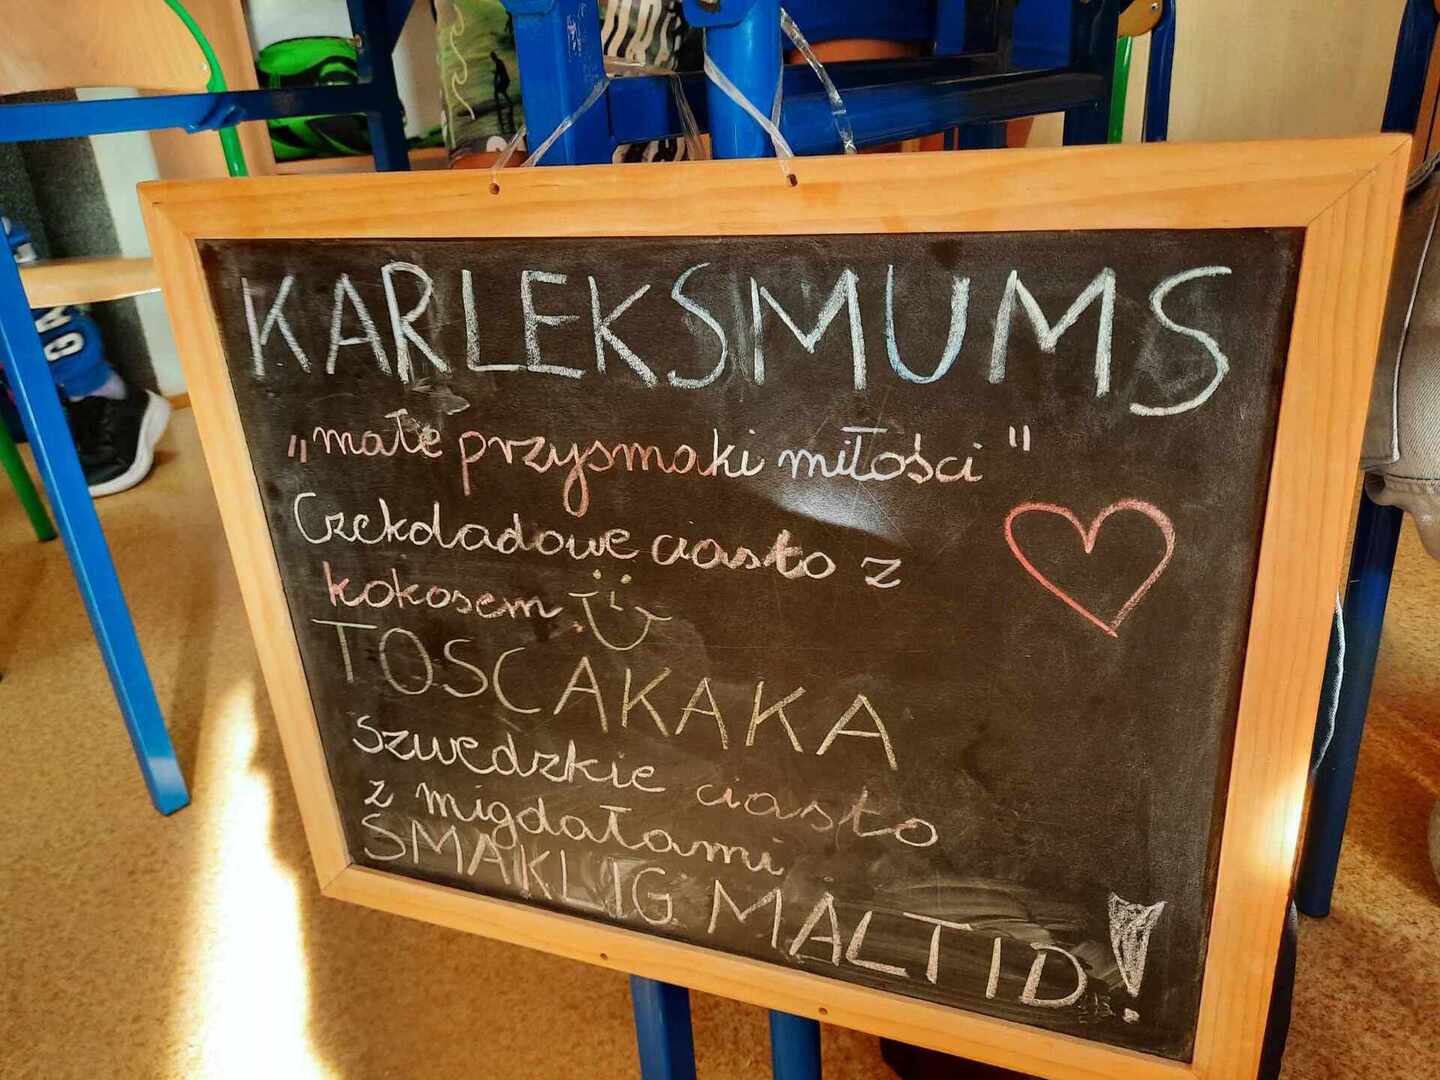 KARLEKSMUMS
„małe przysmaki miłości"
Czekoladowe ciasto z
kokosem
TOSCAKAKA
Szwedzkie ciasto
z migdałami
SMAKLIG MALTID!